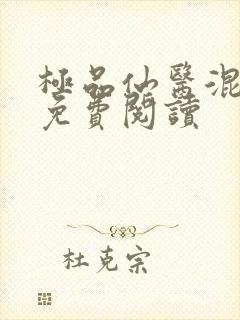 極品仙醫混
免費閱讀
杜克宗